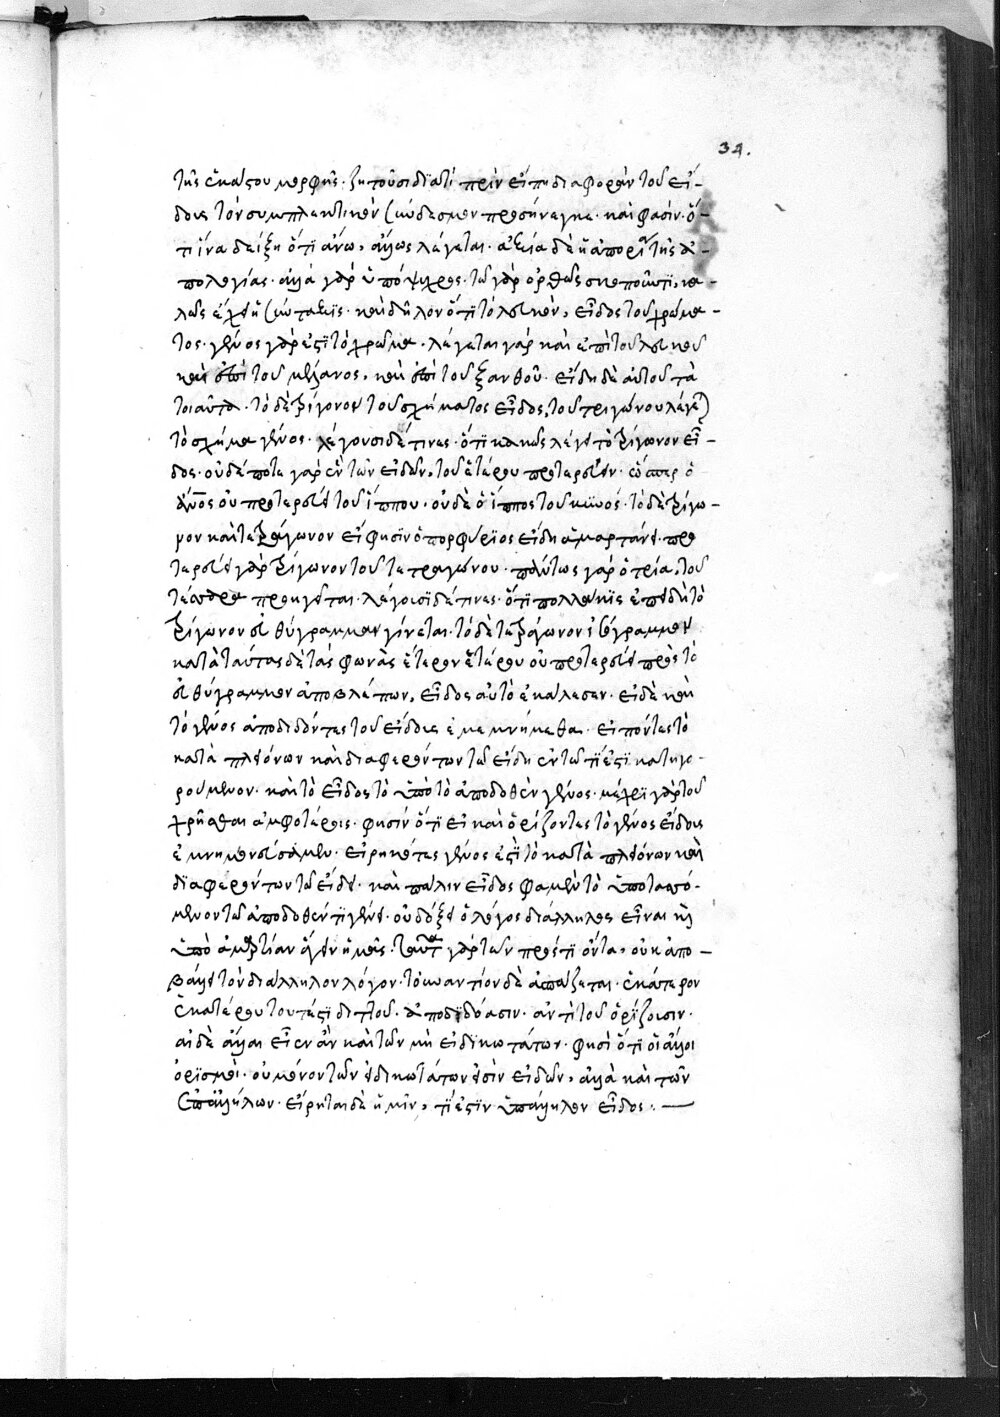 34.
τῆς ἑκάστου μορφῆς· ζητοῦσι διατί πρὶν εἴπῃ διαφορὰν τοῦ εἴ-
δους τὸν συμπλεκτικὸν σύνδεσμον προσήνεγκε· καὶ φασὶν· ὅ-
τι ἵνα δείξῃ ὅτι ἄνω, ἄλλως λέγεται· ἀξία δὲ ἡ ἀπορία τῆς ἀ-
πολογίας· ἀλλὰ γὰρ ὑπόψυχρος· τῷ γὰρ ὀρθῶς σκοποῦντι, κα-
λῶς ἔχει ἡ σύνταξις· καὶ δῆλον ὅτι τὸ λευκὸν, εἶδος τοῦ χρώμα-
τος· γένος γάρ ἐστι τὸ χρῶμα· λέγεται γὰρ καὶ ἐπὶ τοῦ λευκοῦ
καὶ ἐπὶ τοῦ μέλανος, καὶ ἐπὶ τοῦ ξανθοῦ· εἴδη δὲ αὐτοῦ τὰ
τοιαῦτα· τὸ δὲ τρίγωνον τοῦ σχήματος εἶδος, τοῦ τριγώνου λέγει
τὸ σχῆμα γένος· λέγουσι δέ τινες· ὅτι κακῶς λέγει τὸ τρίγωνον εἶ-
δος· οὐδέποτε γὰρ ἓν τῶν εἰδῶν, τοῦ ἑτέρου προτερεύει· ὥσπερ ὁ
ἄνος οὐ προτερεύει τοῦ ἵππου· οὐδὲ ὁ ἵππος τοῦ κυνός· τὸ δὲ τρίγω-
νον καὶ τετράγωνον εἴ φησιν ὁ πορφύριος εἴδη ἁμαρτάνει· προ
τερεύει γὰρ τρίγωνον τοῦ τετραγώνου· πάντως γὰρ ὁ τρία, τοῦ
τέσσαρα προηγεῖται· λέγουσι δέ τινες· ὅτι πολλάκις ἐπειδὴ τὸ
τρίγωνον εὐθύγραμμον γίνεται· τὸ δὲ τετράγωνον εὐθύγραμμον
κατὰ ταύτας δὲ τὰς φωνὰς ἕτερον ἑτέρου οὐ προτερεύει πρὸς τὸ
εὐθύγραμμον ἀποβλέπων, εἶδος αὐτὸ ἐκάλεσεν· εἰ δὲ καὶ
τὸ γένος ἀποδιδόντες τοῦ εἴδους ἐμεμνήμεθα· εἰπόντες τὸ
κατὰ πλειόνων καὶ διαφερόντων τῷ εἴδει ἐν τῷ τί ἐστι κατηγο-
ρούμενον· καὶ τὸ εἶδος τὸ ὑπὸ τὸ ἀποδοθὲν γένος· μέχρι γὰρ τοῦ
χρῆσθαι ἀμφοτέροις· φησὶν ὅτι εἰ καὶ ὁρίζοντες τὸ γένος εἴδους
ἐμνημονεύσαμεν· εἰρηκότες γένος ἐστὶ τὸ κατὰ πλειόνων καὶ
διαφερόντων τῷ εἴδει· καὶ πάλιν εἶδος φαμὲν τὸ ὑποτασσό-
μενον τῷ ἀποδοθέντι γένει· οὐ δόξει ὁ λόγος διάλληλος εἶναι καὶ
ὑπὸ ἁμαρτίαν ἄγειν ἡμᾶς· ταῦτα γὰρ τῶν πρός τι ὄντα, οὐκ ἀπο-
βάλλει τὸν διάλληλον λόγον· τὸ ἐναντίον δὲ ἀσπάζεται· ἑκάτερον
ἑκατέρου τουτέστι διττοῦ· ἀποδιδόασιν· ἀντὶ τοῦ ὁρίζουσιν·
αἱ δὲ ἄλλαι εἶεν ἂν καὶ τῶν μὴ εἰδικωτάτων· φησὶ ὅτι οἱ ἄλλοι
ὁρισμοὶ· οὐ μόνον τῶν εἰδικωτάτων εἰσὶν εἰδῶν, ἀλλὰ καὶ τῶν
ὑπαλλήλων· εἴρηται δὲ ἡμῖν, τί ἐστιν ὑπάλληλον εἶδος:· —